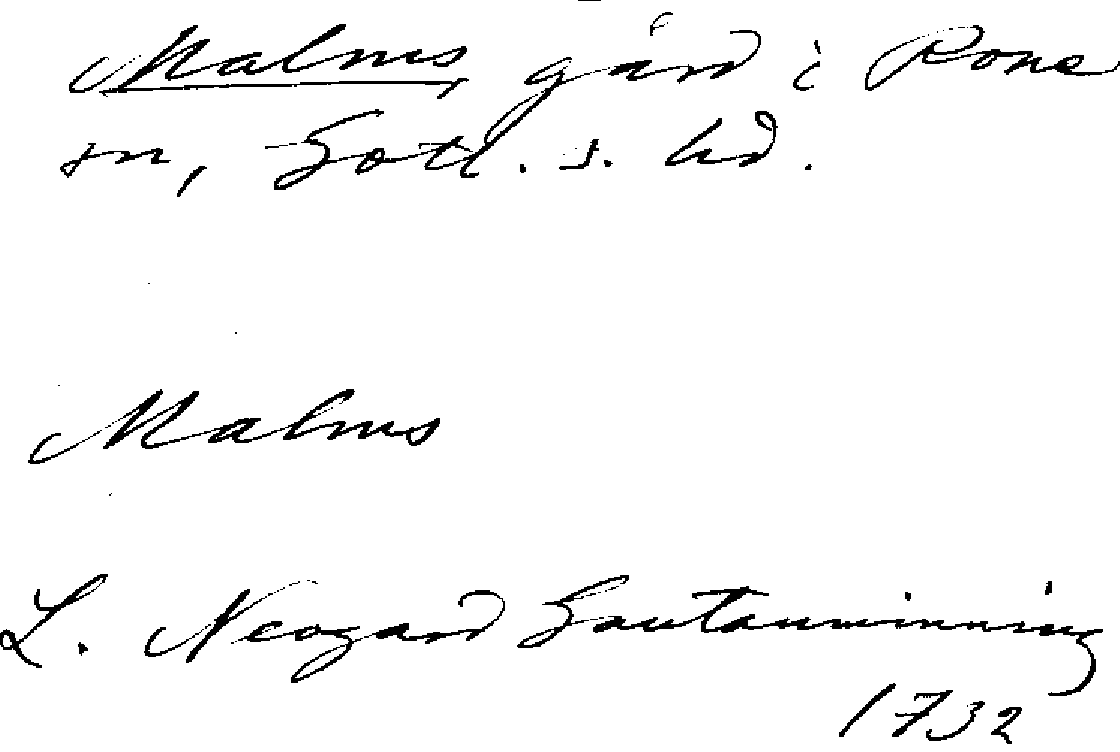 Malms, gård i Rone
sn, Gotl. s. hd.
Malms
L. Neogard Gautauminning
1732